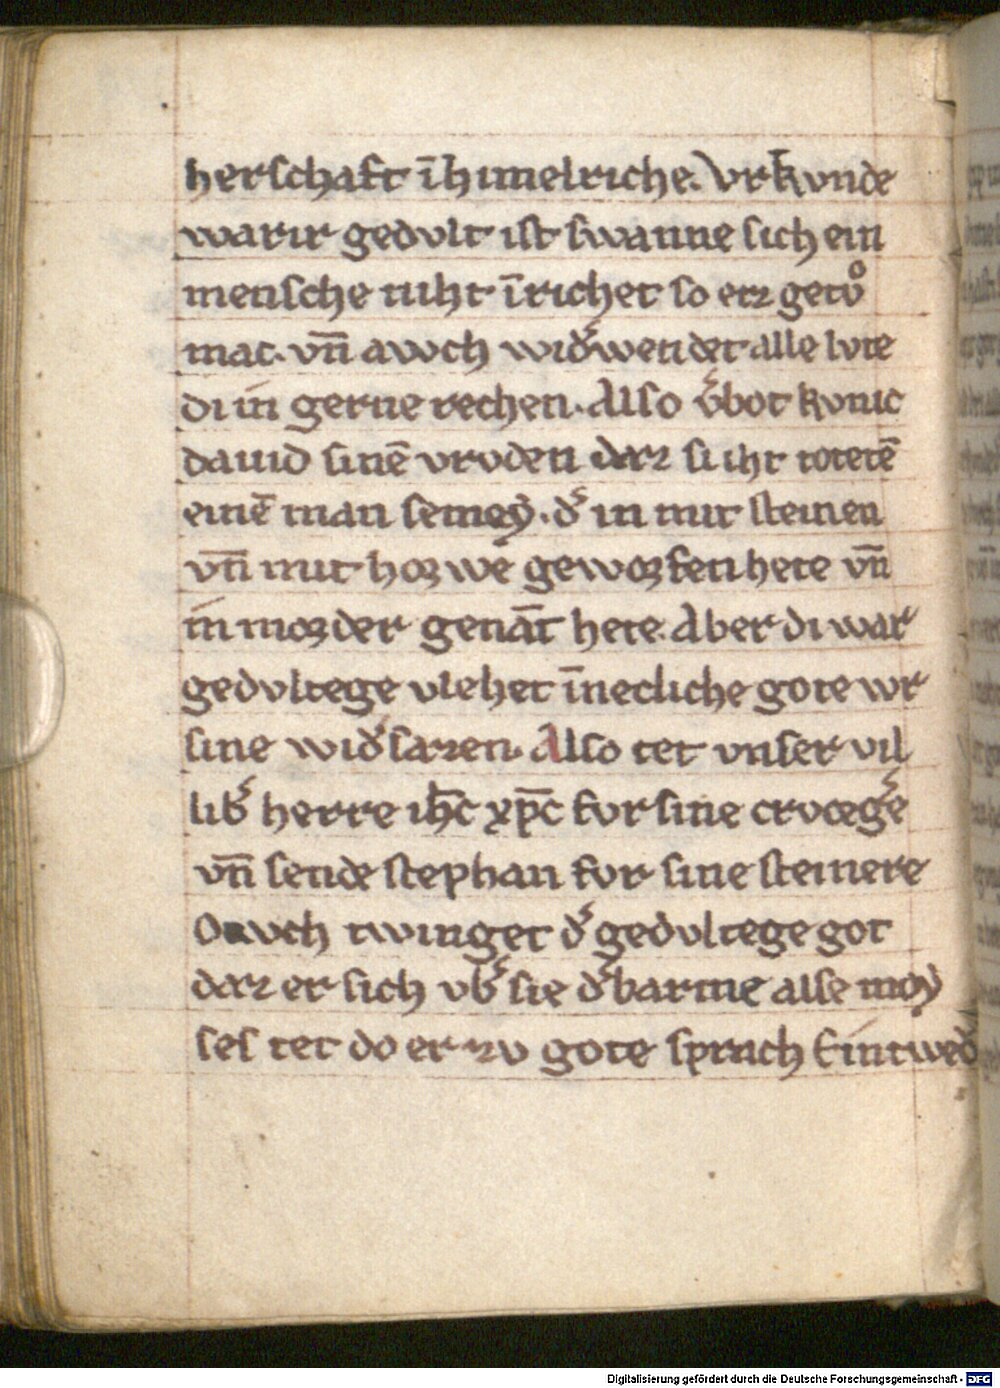 herschaft īhimelriche. Vrkvnde
warir gedvlt ist swanne sich ein
mensche niht īrichet so erz getvͦ
mac. vn̄ awch wid͛wendet alle lvte
di in gerne rechen. Also v͛bot kvnic
dauid sinē vrvden daz si iht totetē
einē man semey. d͛ in mit steinen
vn̄ mit horwe geworfen hete vn̄
in morder genāt hete. Aber di war
gedvltege vlehet īnecliche gote vvr
sine wid͛sazen. Also tet vnser vil
lib͛ herre ih̄c xp̄c fvr sine crvceg͛e
vn̄ sende stephan fvr sine steinere
Owch twinget d͛ gedvltege got
daz er sich vb͛ sie d͛barme alse moy
ses tet do er zv gote sprach Eintwed͛
Digitalisierung gefördert durch die Deutsche Forschungsgemeinschaft - DFG